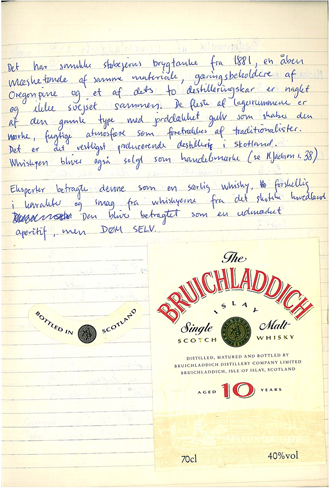 Det har smukke støbejerns brygtanke fra 1881, en åben
mæsketønde af samme materiale, gæringsbeholdere af
Oregonpine og et af dets to destilleringskar er naglet
og ikke svejset sammen. De fleste af lagerrummene er
af den gamle type med jordlakket gulv som skaber den
mørke, fugtige atmosfære som foretrækkes af traditionalister.
Det er det vestligst producerende destilleri i Scotland.
Whiskyen bliver også solgt som handelsmærke (se M. Jackson s. 38)
Eksperter betragter denne som en særlig whisky, forskellig
i karakter og smag fra whiskyerne fra det skotske hovedland
Den bliver betragtet som en udmærket
aperitif, men DØM SELV.
The
BRUICHLADDICH
ISLAY
Single Malt
SCOTCH WHISKY
DISTILLED, MATURED AND BOTTLED BY
BRUICHLADDICH DISTILLERY COMPANY LIMITED
BRUICHLADDICH, ISLE OF ISLAY, SCOTLAND
AGED 10 YEARS
70cl 40%vol
BOTTLED IN SCOTLAND